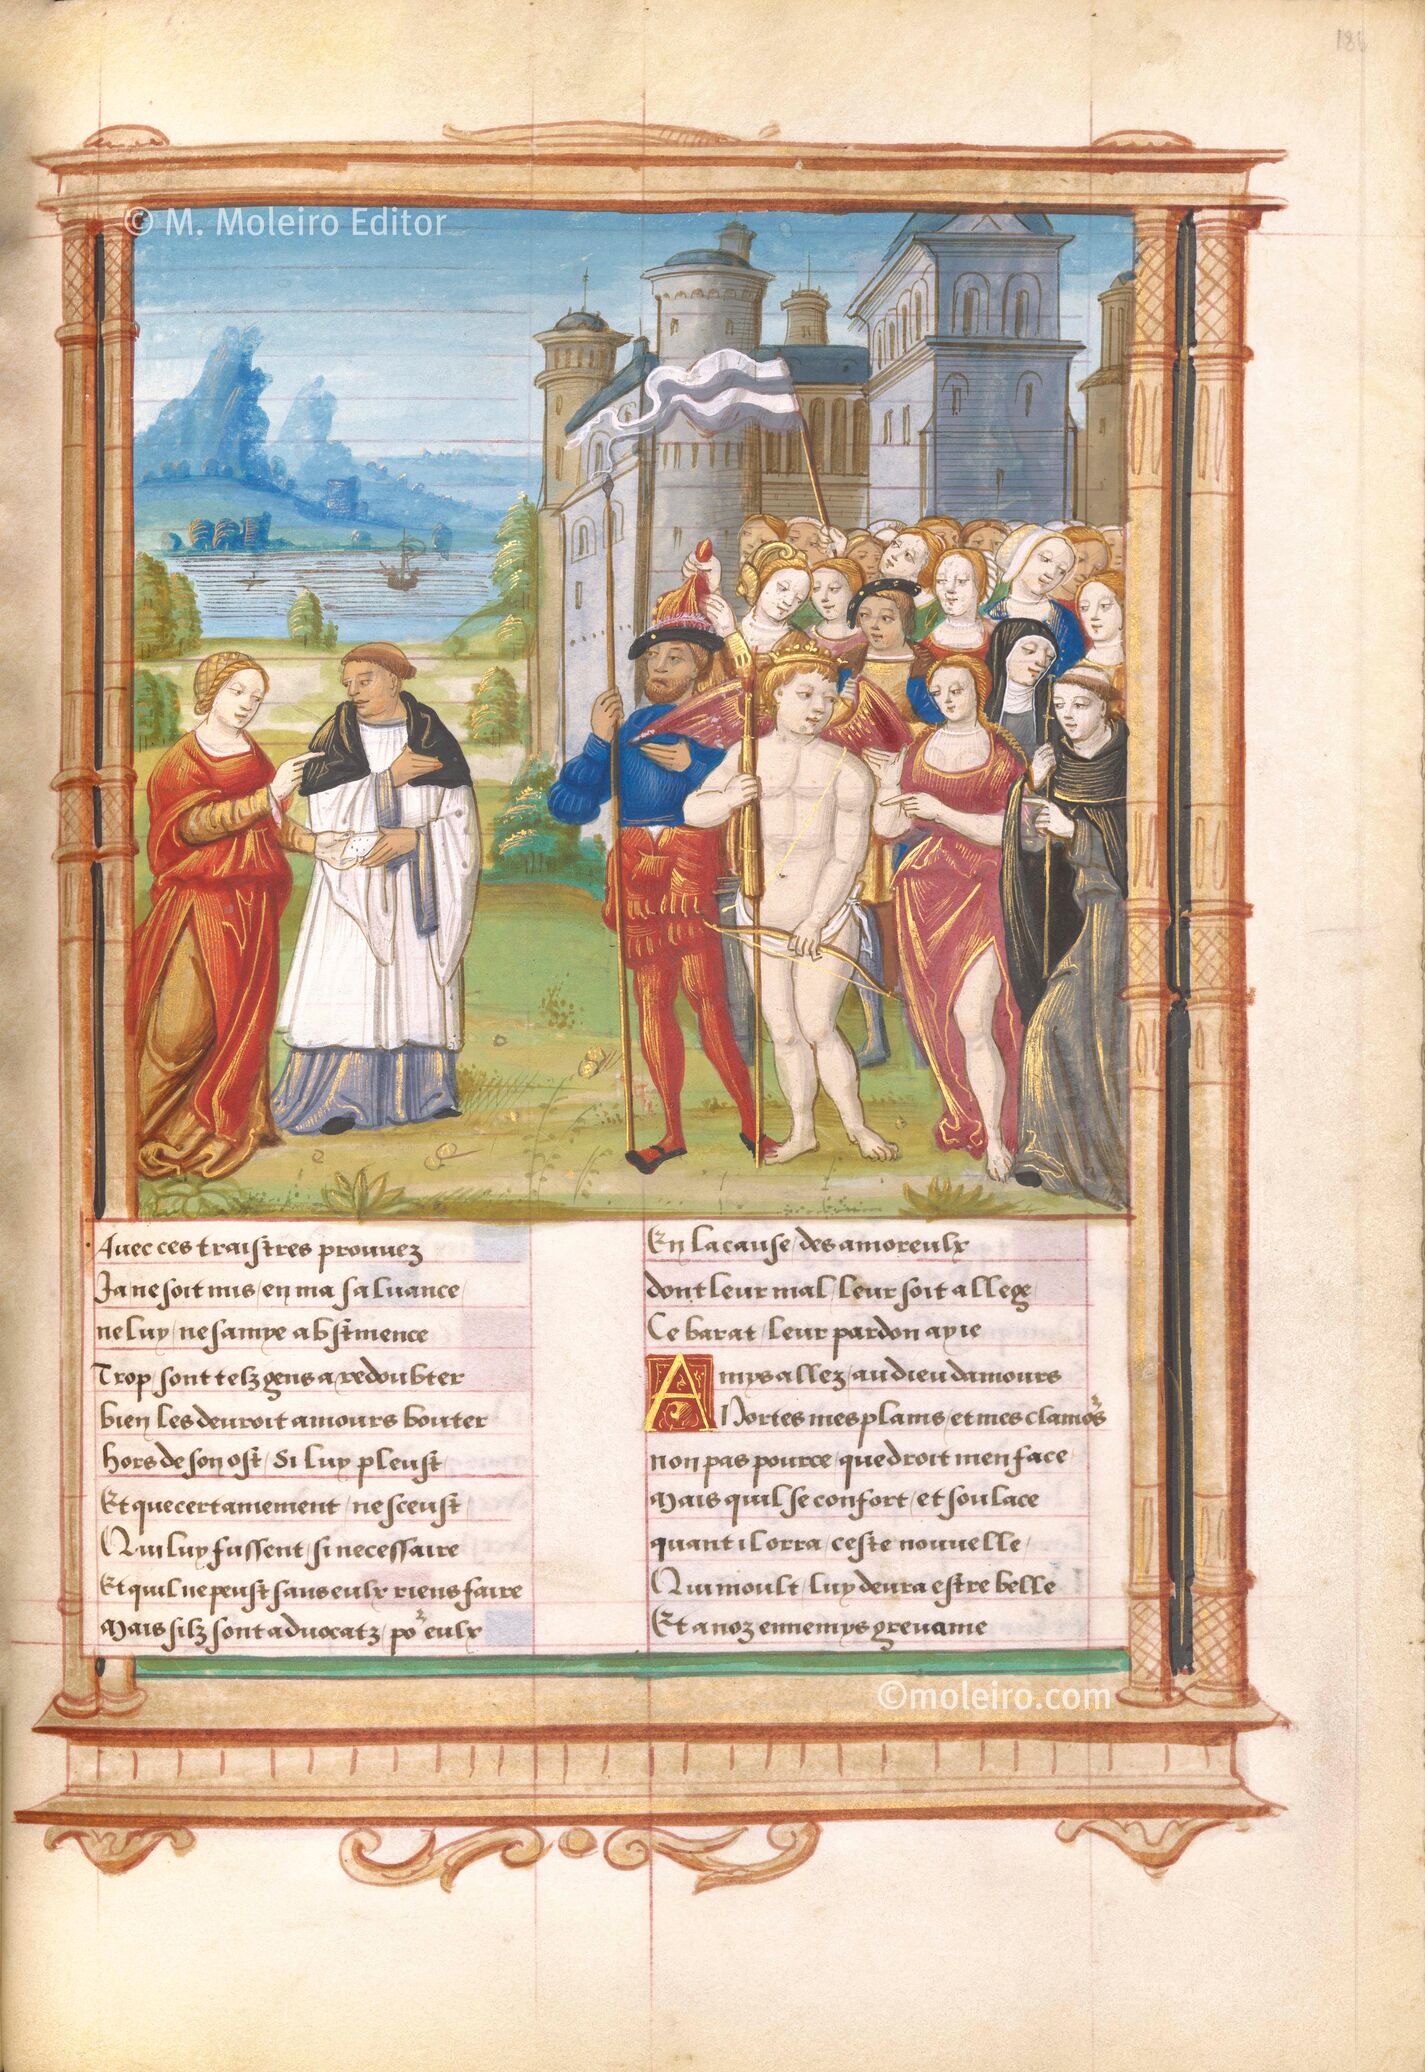 186
© M. Moleiro Editor
Avec ces traistres prouvez
Ja ne soit mis / en ma saluance /
ne luy / ne sampe abstinence
Trop / sont telz gens a redoubter
bien les deuroit amours bouter
hors de son ost / Si luy pleust
Et que certainement / ne sceust /
Qui luy fussent / si necessaire
Et quil ne peust sans eulx riens faire
Mais silz sont aduocatz / po᷑ eulx
En la cause / des amoreulx
dont leur mal / leur soit allege /
Ce barat / leur pardon ay ie
Amys allez / au dieu damours
Portes mes plains / et mes clamo᷑s
non pas pource / que droit men face
Mais quil se confort / et soulace
quant il orra / ceste nouuelle /
Qui moult / luy deura estre belle
Et a noz ennemys greuaine
©moleiro.com